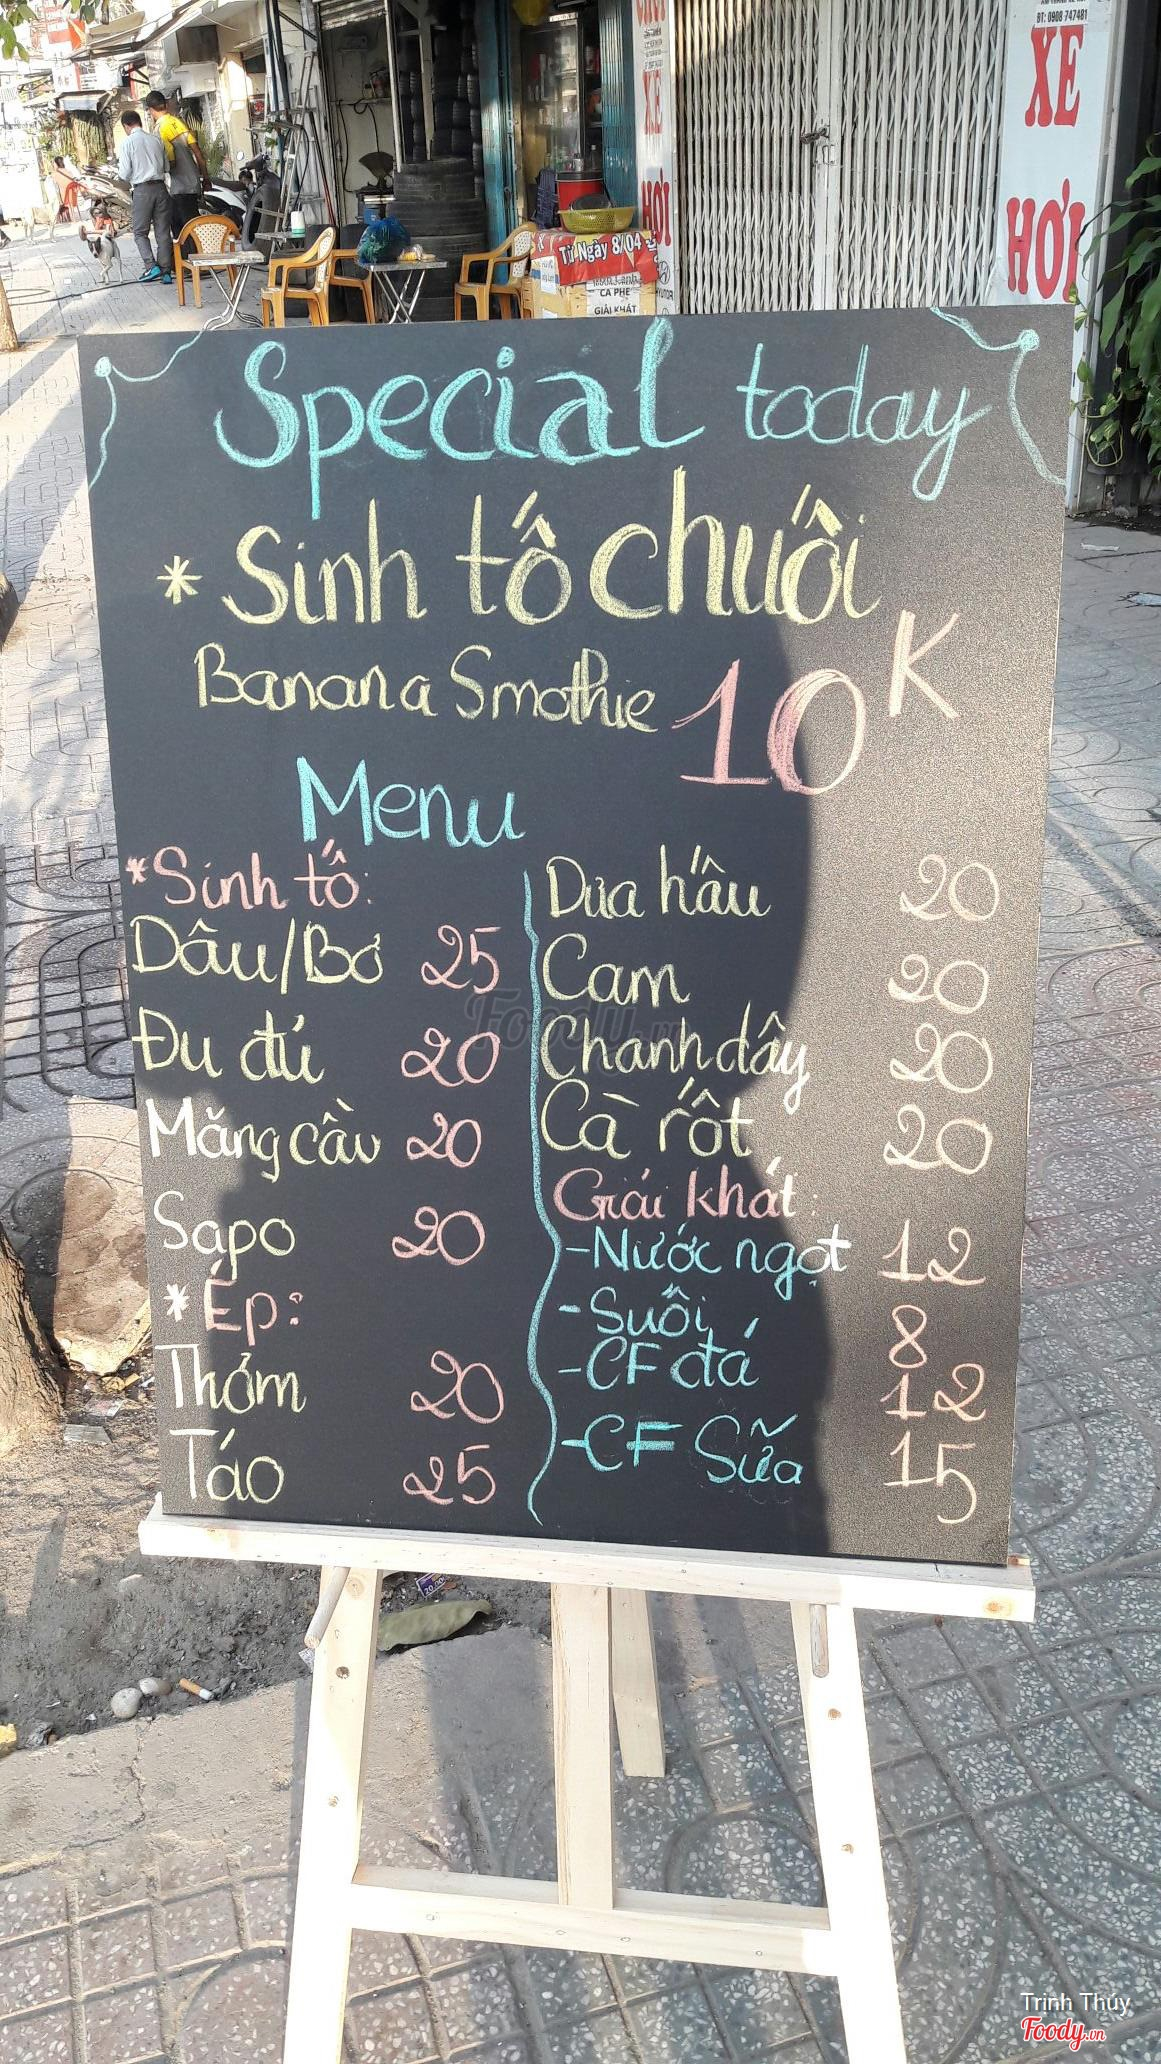 ĐT: 0908 747481
XE
HƠI
XE
HƠI
Từ Ngày 8/04
CA PHE
GIẢI KHÁT
Special today
* Sinh tố chuối
Banana Smothie 10K
Menu
* Sinh tố:
Dâu/Bơ 25
Đu đủ 20
Mãng cầu 20
Sapo 20
* Ép:
Thơm 20
Táo 25
Dưa hấu 20
Cam 20
Chanh dây 20
Cà rốt 20
Giải khát:
- Nước ngọt 12
- Suối 8
- CF đá 12
- CF Sữa 15
Foody.vn
Trinh Thúy
Foody.vn